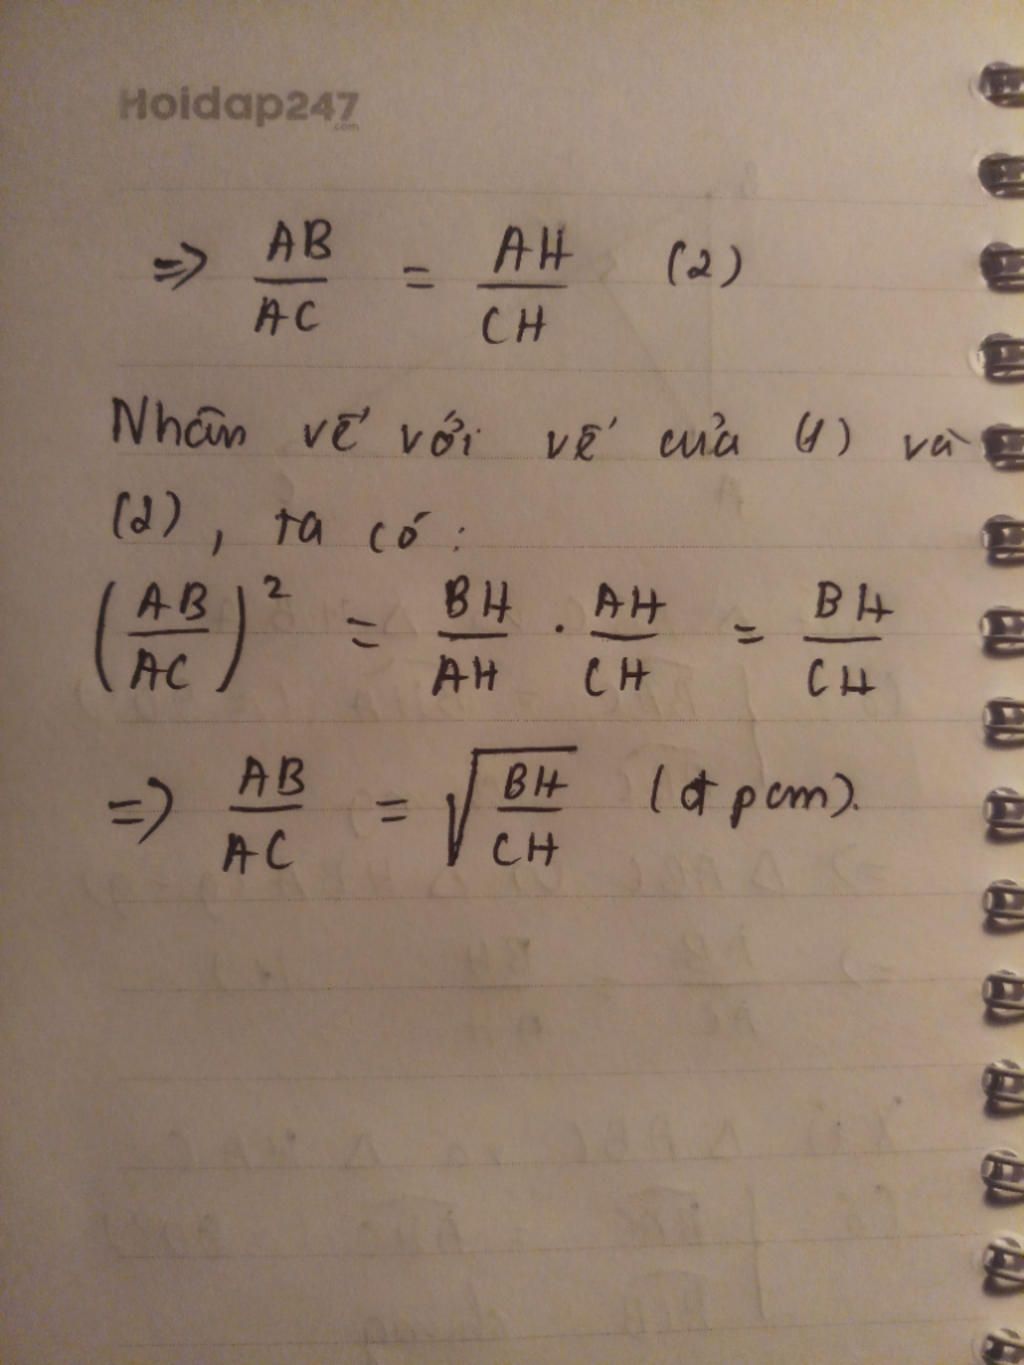 Hoidap247
.com
=> AB/AC = AH/CH (2)
Nhân vế với vế của (1) và
(2), ta có:
(AB/AC)² = BH/AH . AH/CH = BH/CH
=> AB/AC = √(BH/CH) (đpcm).